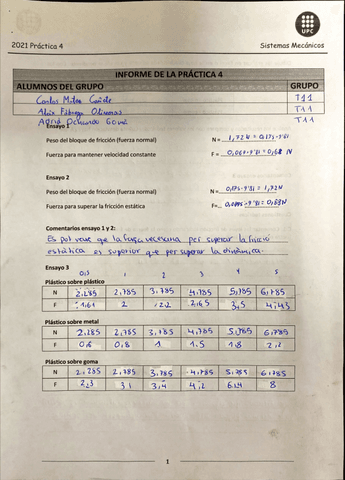 UPC
2021 Práctica 4 Sistemas Mecánicos
INFORME DE LA PRÁCTICA 4
ALUMNOS DEL GRUPO GRUPO
Carlos T11
Aleix T11
T11
Ensayo 1
Peso del bloque de fricción (fuerza normal) N= 1,72N = 0,175·9'81
Fuerza para mantener velocidad constante F = 0,069·9'81 = 0,68 N
Ensayo 2
Peso del bloque de fricción (fuerza normal) N= 0,175·9'81 = 1,72N
Fuerza para superar la fricción estática F=
Comentarios ensayo 1 y 2:
Es pot veure que la força necesaria per superar la fricció
estàtica es superior que per superar la dinàmica.
Ensayo 3
0,5 1 2 3 4 5
Plástico sobre plástico
N 2,285 2,785 3,785 4,785 5,785 6,785
F 1,61 2 2,2 2,65 3,5 4,45
Plástico sobre metal
N 2,285 2,785 3,785 4,785 5,785 6,785
F 0,6 0,8 1 1,5 1,8 2,2
Plástico sobre goma
N 2,285 2,785 3,785 4,785 5,785 6,785
F 2,3 3,1 3,4 4,2 6,4 8
1